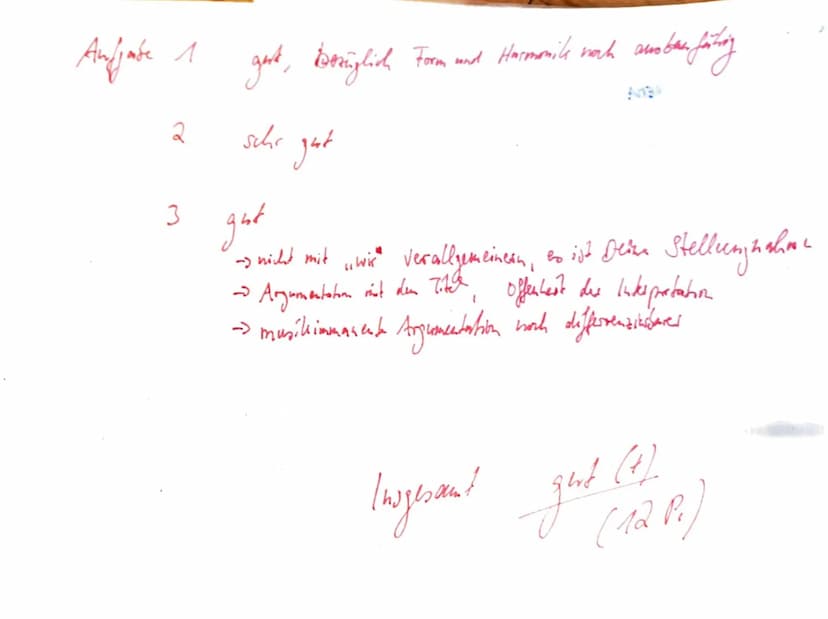 Aufgabe 1 gut, bezüglich Form und Harmonik noch ausbaufähig
2 sehr gut
3 gut
→ nicht mit „wir" verallgemeinern, es ist Deine Stellungnahme
→ Argumentation mit dem Titel, Offenheit der Interpretation
→ musikimmanente Argumentation noch differenzierbarer
Insgesamt gut (+)
(12 P.)